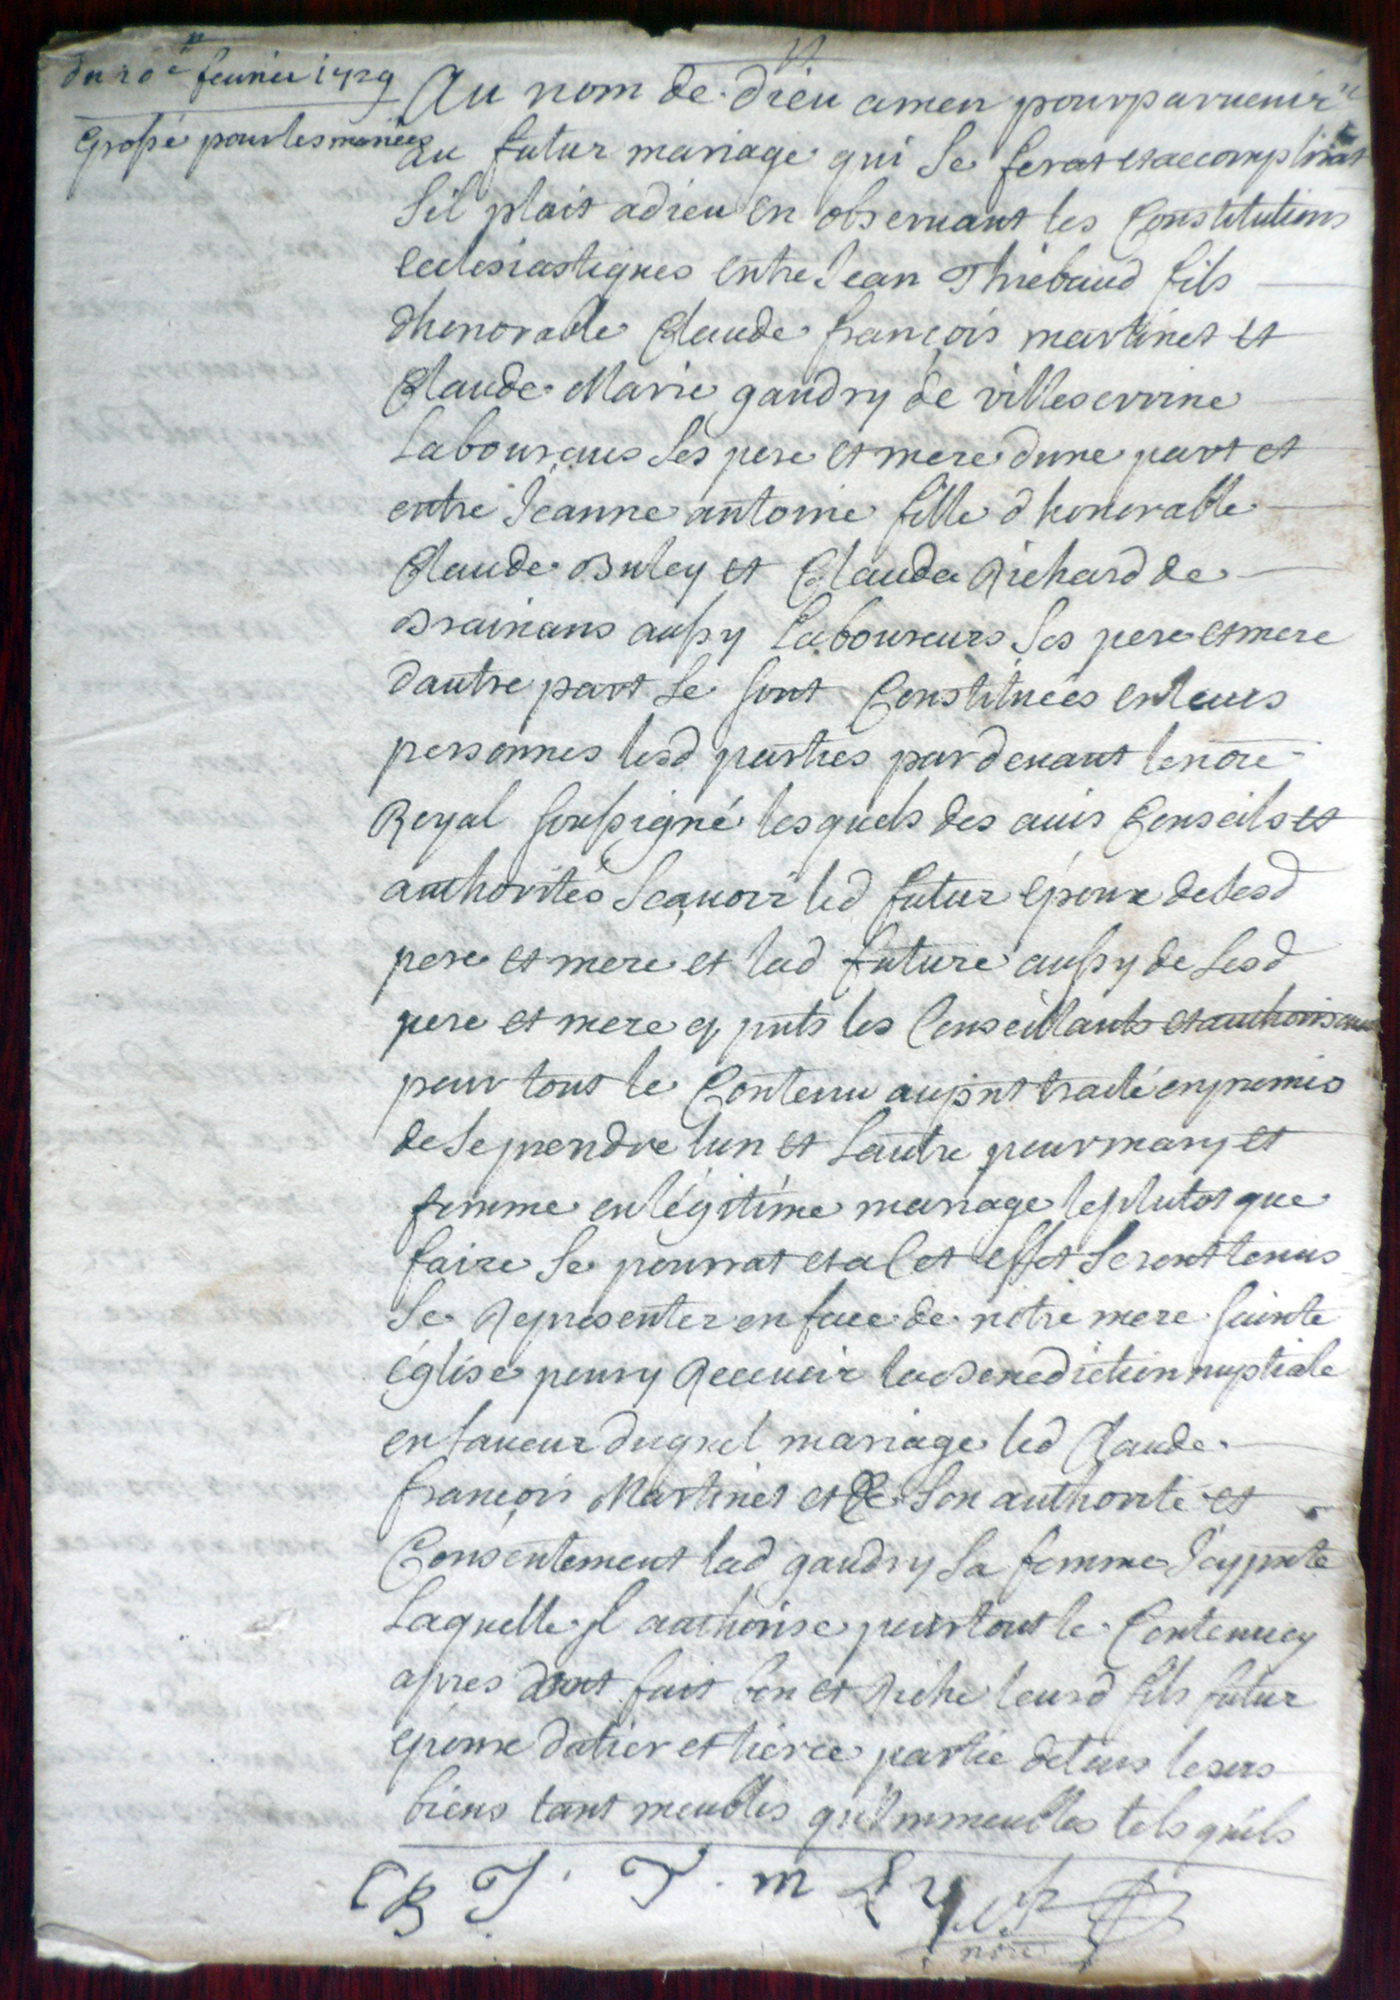 du 20e feurier 1729
Grossé pour les mariés
Au nom de dieu amen pour paruenir
au futur mariage qui se ferat et accomplirat
Sil plait a dieu en obseruant les Constitutions
ecclesiastiques entre Jean Thiebaud fils
dhonorable Claude françois martinet et
Claude Marie gaudry de villeserrine
Laboureurs ses pere et mere dune part et
entre Jeanne antoine fille dhonorable
Claude Buley et Clauda Richard de
Brainans aussy Laboureurs Ses pere et mere
dautre part se sont Constituées en leurs
personnes lesd parties pardeuant le nore
Royal soussigné lesquels des auis Conseils et
authorités Scauoir led futur epoux de sesd
pere et mere et lad future aussy de sesd
pere et mere cy pnts les Conseillants et authorisants
pour tout le Contenu au pnt traité en promis
de se prendre lun et Lautre pour mary et
femme en légitime mariage le plutot que
faire se pourrat et a Cet effet seront tenus
se Representer en face de notre mere sainte
église pour y Receuoir la Benediction nuptiale
en faueur duquel mariage led Claude
françois Martinet et de son authorité et
Consentement lad gaudry sa femme Icy pnte
Laquelle Il authorise pour tout le Contenu cy
apres dont fait bon et Riche leurd fils futur
epoux dutier et tierce partie de tous leurs
biens tant meubles qu'immeubles tels quils
CB J. T. m
nore